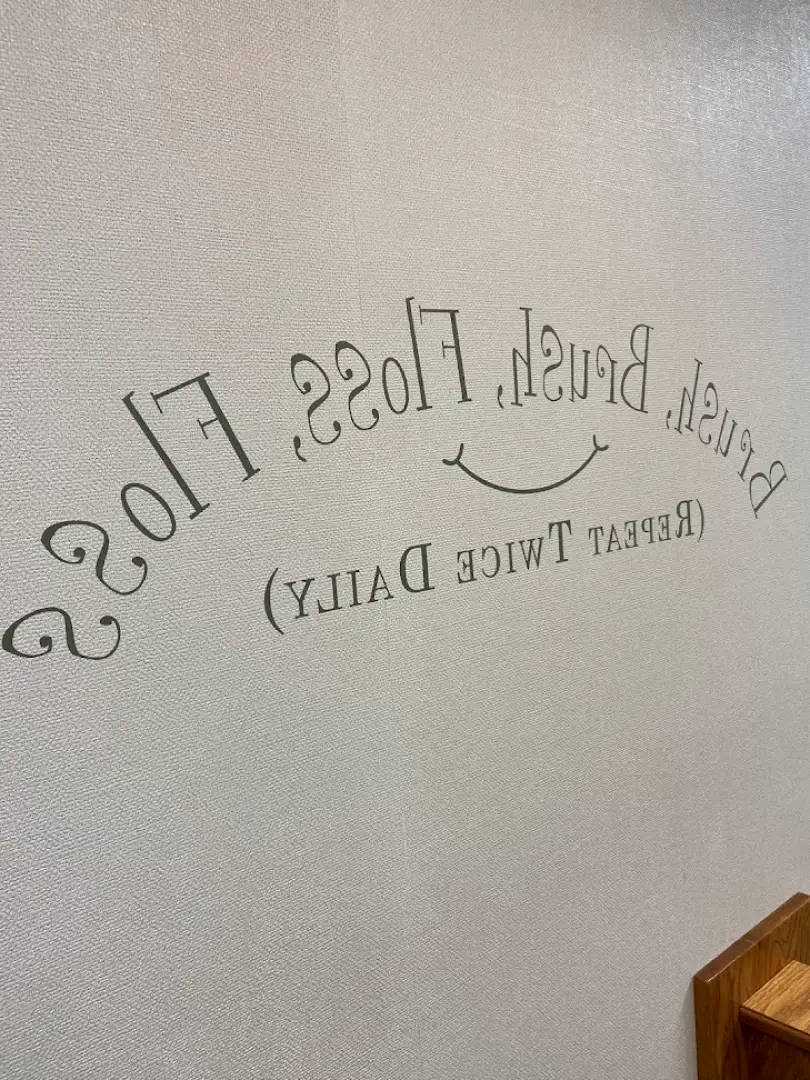 Brush, Brush, Floss, Floss
(REPEAT TWICE DAILY)